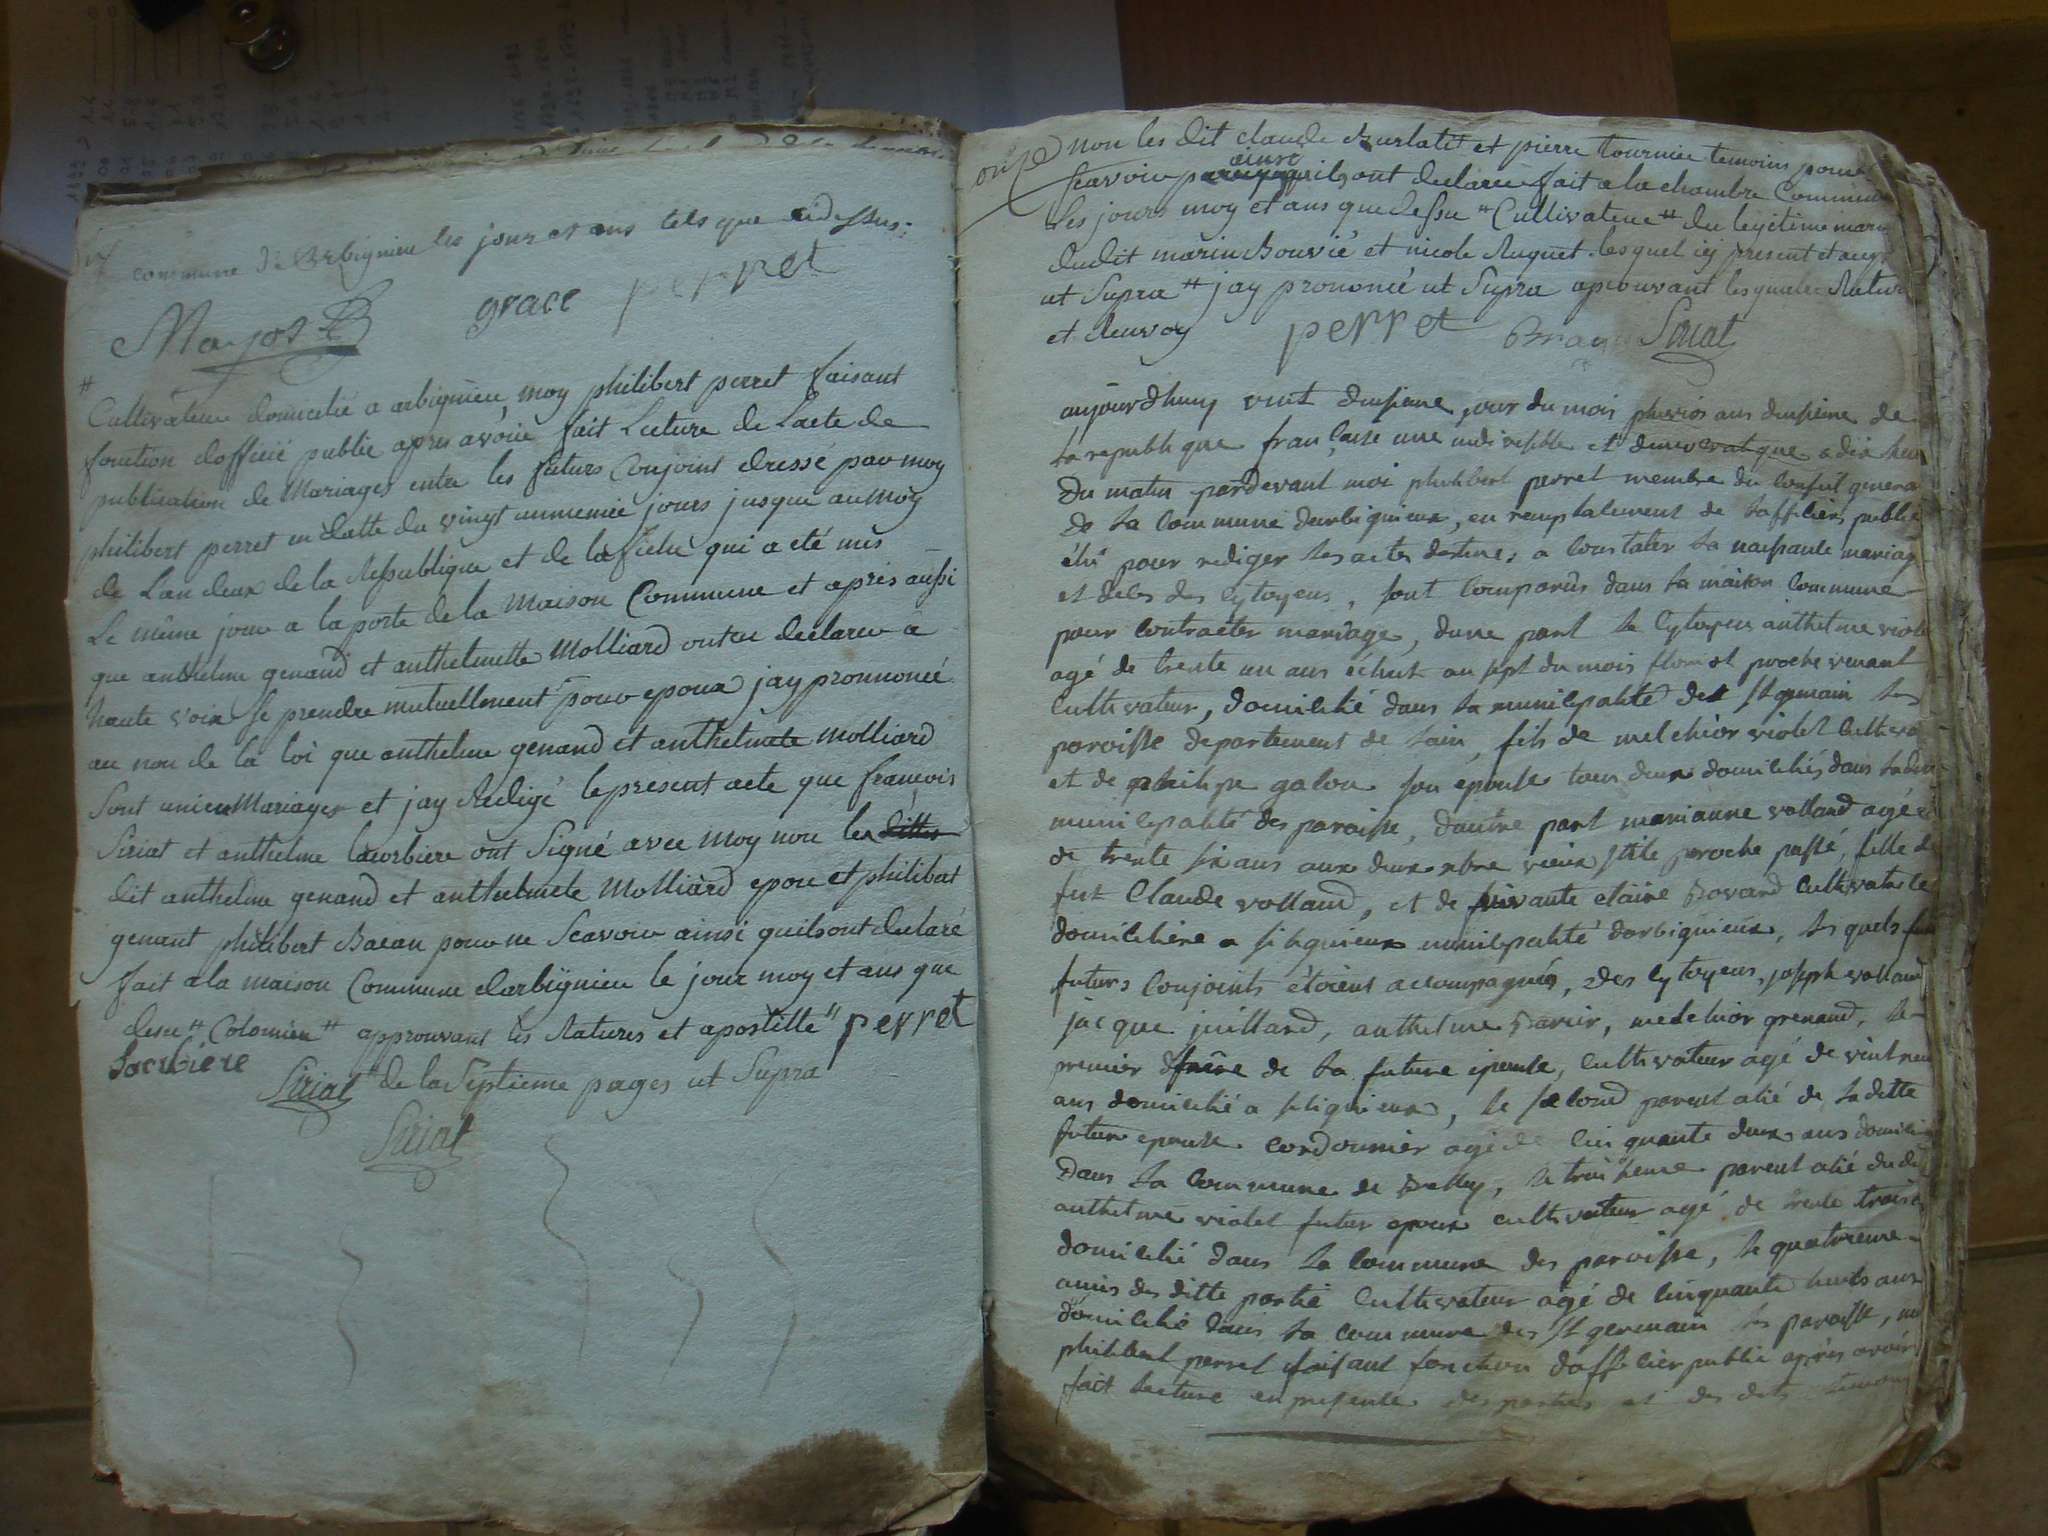 commune d'arbignieu les jour et ans tels que cidessus.
Marjost grace perret
Cultivateur domicilié a arbignieu, moy philibert perret faisant
fonction dofficié public apres avoir fait Lecture de Lacte de
publication de Mariages entre les futurs Conjoint dressé par moy
philibert perret en datte du vingt jours jusque au moy
de Lan deux de la Republique et de la fiche qui a eté mis
Le même jour a la porte de la Maison Commune et apres aussi
que anthelme genand et anthelmette Molliard ont declarer a
haute voix se prendre mutuellement pour epoux jay prononcé
au non de la loi que anthelme genand et anthelmete molliard
sont unien Mariages et jay Redigé le present acte que francois
Siriat et anthelme lacorbiere ont Signé avec moy non les dittes
dit anthelme genand et anthelmete Molliard epou et philibert
genant philibert Baean pour ne Scavoir ainsi quils ont declaré
fait a la maison Commune darbignieu le jour moy et ans que
desu " Colomieu " approuvant les Ratures et apostille " perret
Lacrbiere
Siriat " de la Septieme pages ut Supra
Siriat
onze non les dit claude Burlatit et pierre tournier temoins pour
Scavoir ainsy quils ont declarer fait a la chambre Commune
les jours moy et ans que dessu " Cultivateur " du legitime mari
dudit marin Bouvié et nicole Ruguet lesquel icy present et
ut Supra " jay prononcé ut Supra aprouvant lesquelle Rature
et Renvoy perret Siriat
aujourdhuy vint deusieme jour du mois pluvios ans deusieme de
la republique francaise une indivisible et democratique a dix heur
du matin pardevant moi philibert perret membre du Conseil general
de la Commune darbignieux, en remplalement de laffilier public
élu pour rediger les actes destines a Constater la naissance mariage
et deles des Cytoyens, sont Comparûs dans la maison Commune
pour Contracter mariage, dune part le Cytoyen anthelme violet
agé de trente un ans échut au sept du mois floreal proche venant
Cultivateur, domicilié dans la municipalité de St germain les
paroisse departement de lain, fils de melchior violet Cultiva
et de philipe galon son épouse tous deux domiciliés dans ladite
municipalité des paroisse, dautre part marianne volland agée
de trente six ans aux deux vieux stile proche passé, fille de
fut Claude volland, et de vivante claire Bovard Cultivatrice
domiciliere a silignieux municipalité darbignieux, lesquels
futurs Conjoints étoient accompagnés, des Cytoyens, joseph volland
jacque juilland, anthelme Darcir, melchior grenand, le
premier frère de la future epouse, Cultivateur agé de vint neuf
ans domicilié a silignieux, le selond parent alié de ladette
future epouse Cordonnier agé de Cinquante deux ans domicilié
dans la Commune de Belley, le troisieme parent alié du dit
anthelme violet futur epoux Cultivateur agé de trente trois
domicilié dans la Commune des paroisse, le quatrieme
amis des ditte partie Cultivateur agé de Cinquante huits ans
domicilié dans la Commune des St germain les paroisse, moi
philibert perret faisant fonction dofficier public après avoir
fait lecture en presente des parties et des dits temoins